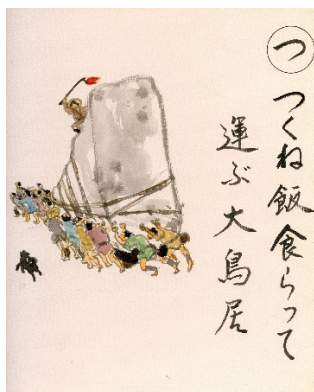 つ
つくね飯食らって
運ぶ大鳥居